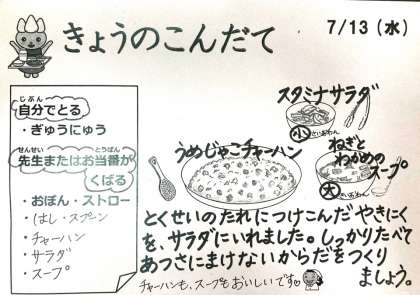 きょうのこんだて
7/13（水）
じぶん
自分でとる
・ぎゅうにゅう
せんせい とうばん
先生またはお当番が
くばる
・おぼん・ストロー
・はし・スプーン
・チャーハン
・サラダ
・スープ
スタミナサラダ
小さいおわん
うめじゃこチャーハン
ねぎと
わかめの
スープ
大きいおわん
とくせいのたれにつけこんだやきにく
を、サラダにいれました。しっかりたべて
あつさにまけないからだをつくり
ましょう。
チャーハンも、スープもおいしいです